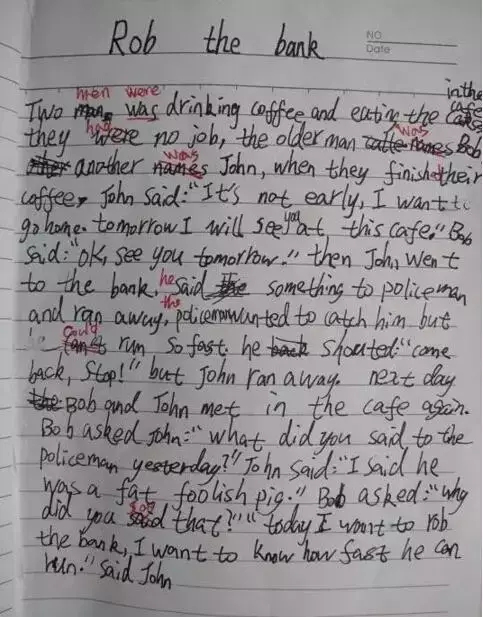 Rob the bank
NO
Date
men were in the
Two man was drinking coffee and eating the cakes cafe
had was
they were no job, the older man names Bob
was
another names John, when they finished their
coffee, John said:"It's not early, I want to
you
go home. tomorrow I will see at this cafe." Bob
said:"OK, see you tomorrow." then John went
he
to the bank. said the something to policeman
the
and ran away, policeman wanted to catch him but
could
run so fast. he back shouted:"come
back, stop!" but John ran away. next day
the Bob and John met in the cafe again.
Bob asked John:"what did you said to the
policeman yesterday?" John said:"I said he
was a fat foolish pig." Bob asked:"why
say
did you said that?" "today I want to rob
the bank, I want to know how fast he can
run." said John